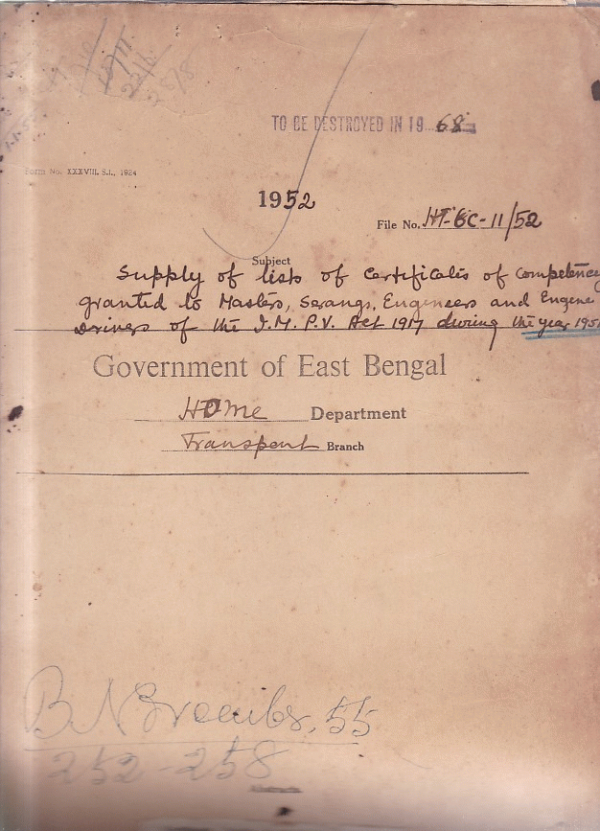 TO BE DESTROYED IN 19 68
Form No. XXXVIII, S.I., 1924
1952
File No. HT-6C-11/52
Subject
Supply of lists of Certificates of Competency
granted to Masters, Serangs, Engineers and Engine
Drivers of the I.M.P.V. Act 1917 during the year 1951
Government of East Bengal
Home Department
Transport Branch
B November, 55
252-258